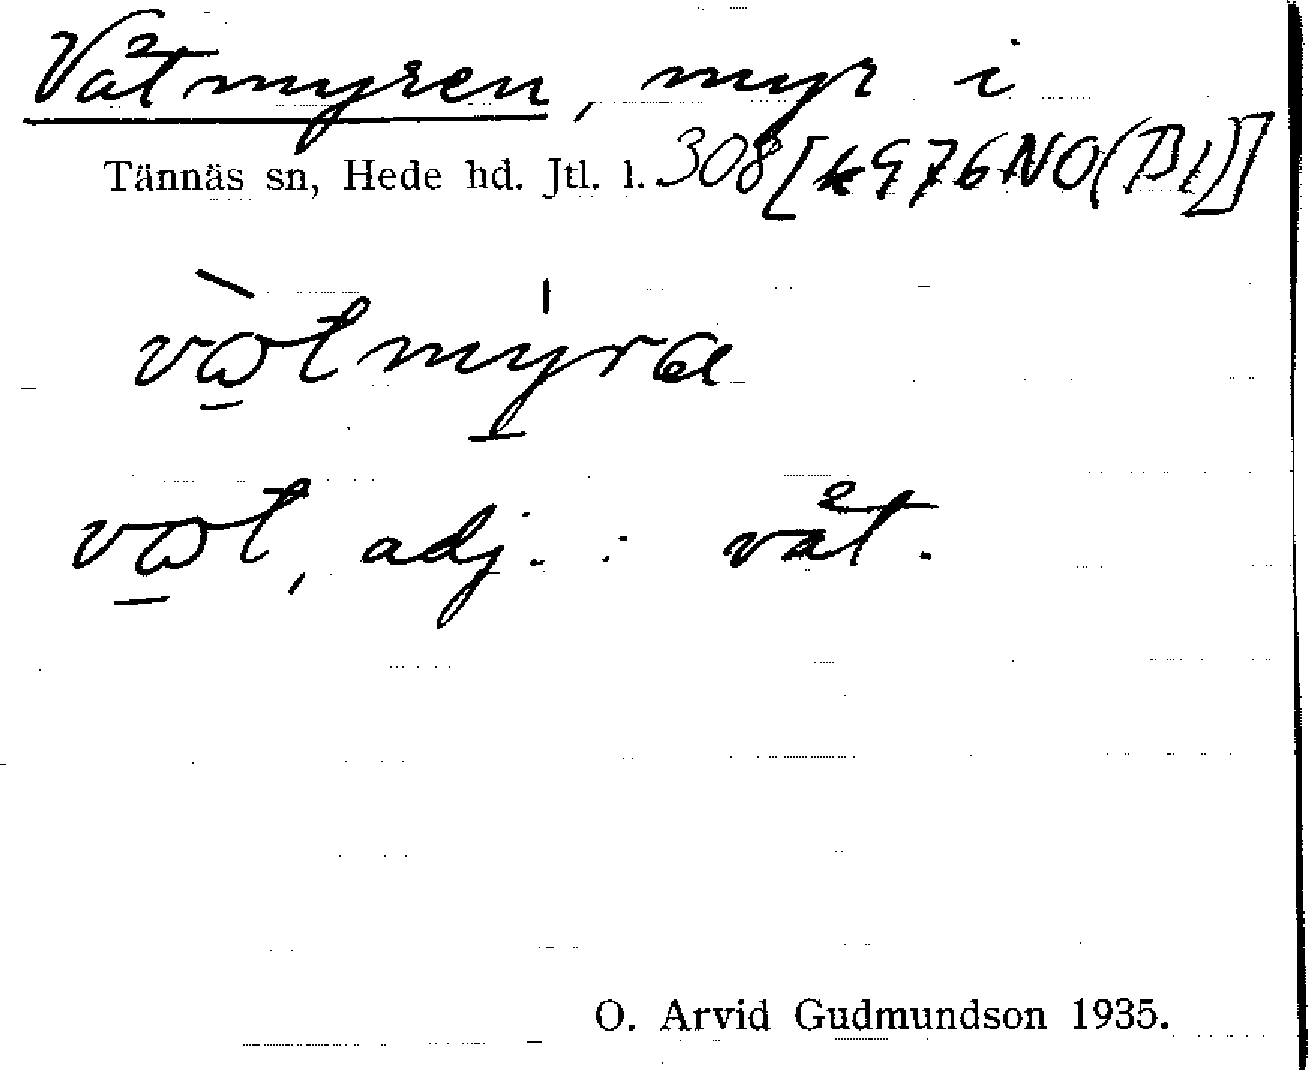 Våtmyren, myr i
Tännäs sn, Hede hd. Jtl. l. 308 [k976NO(B1)]
vàtmýra
vat, adj. : våt.
O. Arvid Gudmundson 1935.